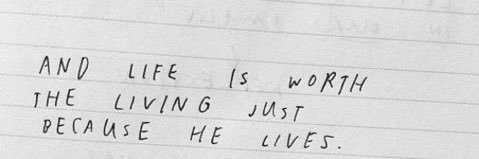 AND LIFE IS WORTH
THE LIVING JUST
BECAUSE HE LIVES.